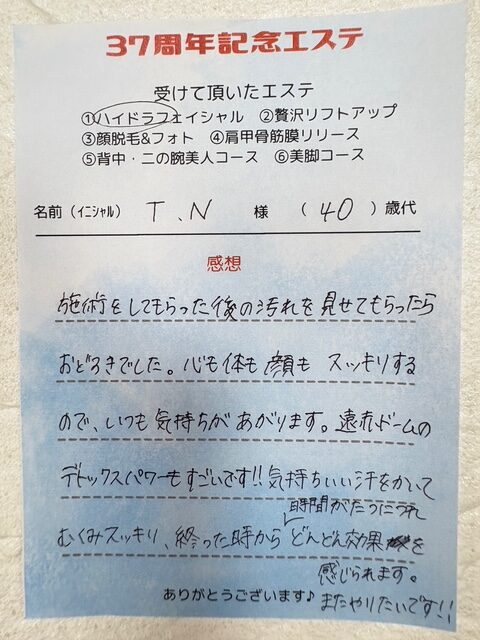 37周年記念エステ
受けて頂いたエステ
①ハイドラフェイシャル ②贅沢リフトアップ
③顔脱毛&フォト ④肩甲骨筋膜リリース
⑤背中・二の腕美人コース ⑥美脚コース
名前(イニシャル) T.N 様 (40)歳代
感想
施術をしてもらった後の汚れを見せてもらったら
おどろきでした。心も体も顔もスッキリする
ので、いつも気持ちがあがります。遠赤ドームの
デトックスパワーもすごいです!!気持ちいい汗をかいて
むくみスッキリ、終った時から時間がたつにつれどんどん効果を
感じられます。
ありがとうございます♪ またやりたいです!!